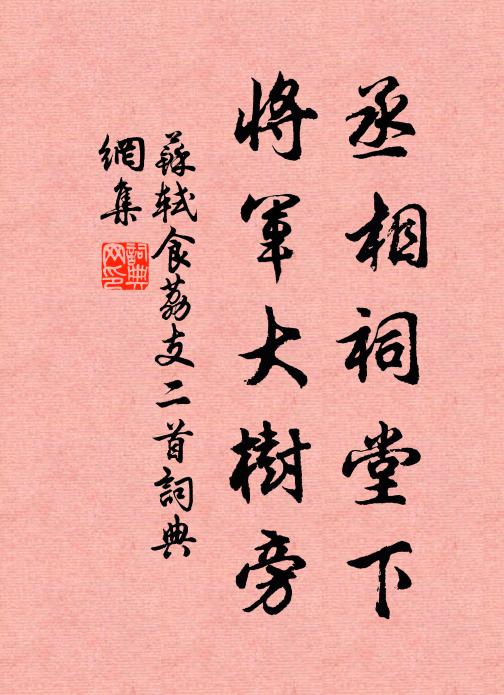 丞相祠堂下
將軍大樹旁
蘇軾食荔支二首詞典
網集
詞典
网印